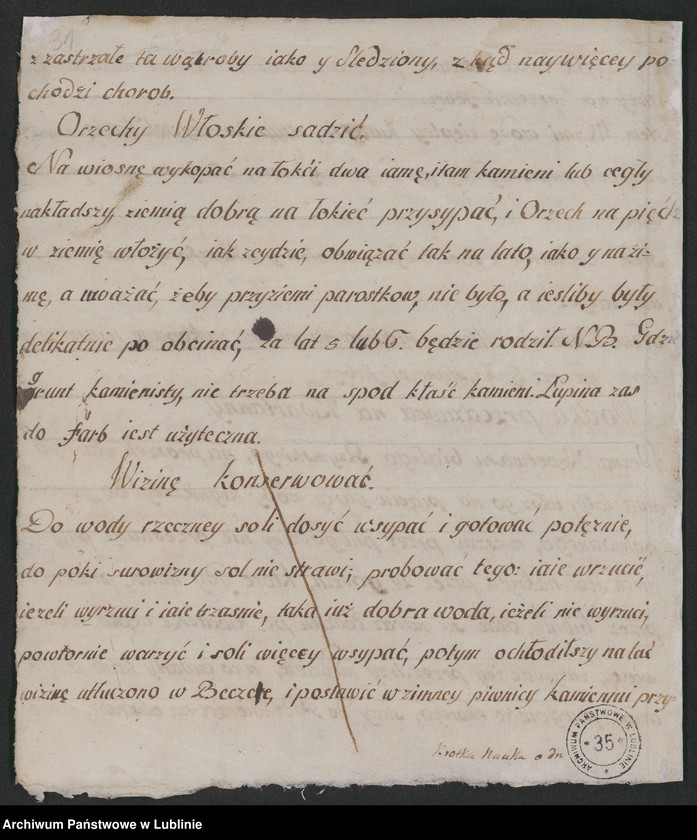 31
z zastrzałe ta wątroby iako y sledziony, z kąd naywięcey po
chodzi chorob.
Orzechy Włoskie sadzić.
Na wiosnę wykopać na łokći dwa iamę, i tam kamieni lub cegły
nakładszy, ziemią dobrą na łokieć przysypać, i Orzech na pięćdź
w ziemię włożyć, iak zeydzie, obwiązać tak na lato, iako y na zi-
mę, a uważać, żeby przyziemi parostkow, nie było, a iesliby były
delikatnie po obcinać, za lat 5 lub 6. będzie rodził. N.B. Gdzie
grunt kamienisty, nie trzeba na spod kłaść kamieni. Łupina zas
do farb iest użyteczna.
Wizinę konserwować.
Do wody rzeczney soli dosyć wsypać i gotować potężnie,
do poki surowizny sol nie strawi; probować tego: iaie wrzucić,
ieżeli wyrzuci i iaie trzasnie, taka iuż dobra woda, ieżeli nie wyrzuci,
powtornie warzyć i soli więcey wsypać, potym ochłodziłszy nalać
wizinę utłuczono w Beczce, i postawić w zimney piwnicy kamienni przy-
Krotka Nauka o
ARCHIWUM PAŃSTWOWE W LUBLINIE
* 35 *
Archiwum Państwowe w Lublinie